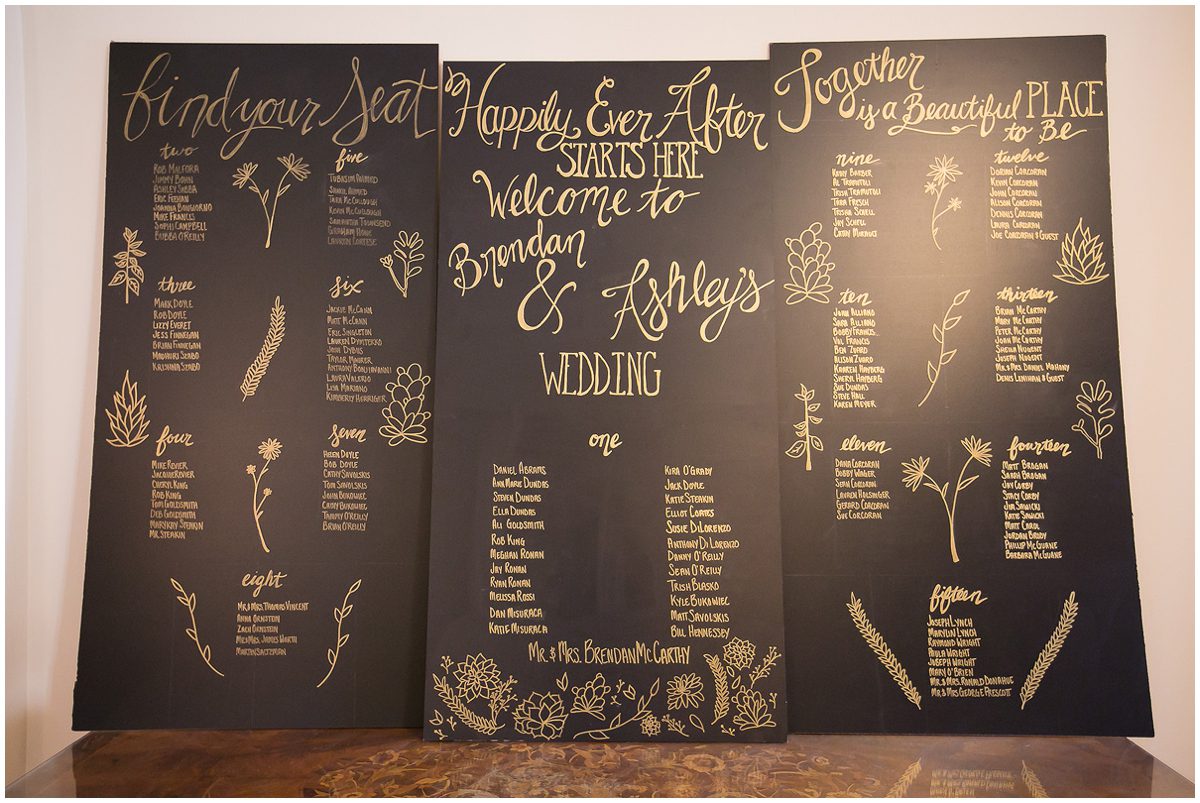 find your Seat
two
ROB MALFORA
JIMMY BOHN
ASHLEY SABBA
ERIC FEEHAN
JOANNA BONGIORNO
MIKE FRANCIS
SOPHI CAMPBELL
BUBBA O'REILLY
three
MARK DOYLE
ROB DOYLE
LIZZY EVERET
JESS FINNEGAN
BRIAN FINNEGAN
MADHURI SZABO
KRISHNA SZABO
four
MIKE REVIER
JACQUIE REVIER
CHERYL KING
ROB KING
TOM GOLDSMITH
DEB GOLDSMITH
MARYKAY STEAKIN
MR. STEAKIN
five
TUBASUM AHMED
SHAKIL AHMED
TARA MCCULLOUGH
KEVIN MCCULLOUGH
SAMANTHA TOWNSEND
GRAHAM HOWE
LAURYN CORTESE
six
JACKIE MCCANN
MATT MCCANN
ERIC SINGLETON
LAUREN DMYTERKO
JOSH DYBUS
TAYLOR MAURER
ANTHONY BONJIAVANNI
LAURA VALERIO
LISA MARIANO
KIMBERLY HERRIGER
seven
HELEN DOYLE
BOB DOYLE
CATHY SAVOLSKIS
TOM SAVOLSKIS
JOHN BUKOWIEC
CATHY BUKOWIEC
TAMMY O'REILLY
BRIAN O'REILLY
eight
MR & MRS. THOMAS VINCENT
ANNA ORNSTEIN
ZACH ORNSTEIN
MR & MRS. JAMES WORTH
MARTIN SALTZMAN
Happily Ever After
STARTS HERE
Welcome to
Brendan
& Ashley's
WEDDING
one
DANIEL ABRAMS
ANN MARIE DUNDAS
STEVEN DUNDAS
ELLA DUNDAS
ALI GOLDSMITH
ROB KING
MEGHAN RONAN
JAY RONAN
RYAN RONAN
MELISSA ROSSI
DAN MISURACA
KATIE MISURACA
KIRA O'GRADY
JACK DOYLE
KATIE STEAKIN
ELLIOT COATES
SUSIE DILORENZO
ANTHONY DI LORENZO
DANNY O'REILLY
SEAN O'REILLY
TRISH BLASKO
KYLE BUKOWIEC
MATT SAVOLSKIS
BILL HENNESSEY
MR. & MRS. BRENDAN MCCARTHY
Together
is a Beautiful PLACE
to Be
nine
RORY BARBER
AL TRAMUTOLI
TRISH TRAMUTOLI
TARA FRESCH
TRISHA SCHELL
JAY SCHELL
CATHY MURAWCZ
ten
JOHN ALLIANO
SARA ALLIANO
BOBBY FRANCIS
VAL FRANCIS
BEN ZVARD
ALISON ZVARD
KAAREN HAYBERG
SHERYL HAYBERG
SUE DUNDAS
STEVE HALL
KAREN MEYER
eleven
DANA CORCORAN
BOBBY WAGER
SEAN CORCORAN
LAUREN HOLSINGER
GERARD CORCORAN
SUE CORCORAN
twelve
DORIAN CORCORAN
KEVIN CORCORAN
JOHN CORCORAN
ALISON CORCORAN
DENNIS CORCORAN
LAURA CORCORAN
JOE CORCORAN & GUEST
thirteen
BRIAN MCCARTHY
MARY MCCARTHY
PETER MCCARTHY
JOAN MCCARTHY
SHEILA NUGENT
JOSEPH NUGENT
MR. & MRS. DANIEL MAHONY
DENIS LENIHAN & GUEST
fourteen
MATT BROGAN
SARAH BROGAN
JAY CORBY
STACY CORBY
JIM SAWICKI
KATIE SAWICKI
MATT CAROL
JORDAN BRODY
PHILLIP MCGUANE
BARBARA MCGUANE
fifteen
JOSEPH LYNCH
MARYLIN LYNCH
RAYMOND WRIGHT
PAULA WRIGHT
JOSEPH WRIGHT
MARY O'BRIEN
MR. & MRS. RONALD DONAHUE
MR. & MRS GEORGE PRESCOTT